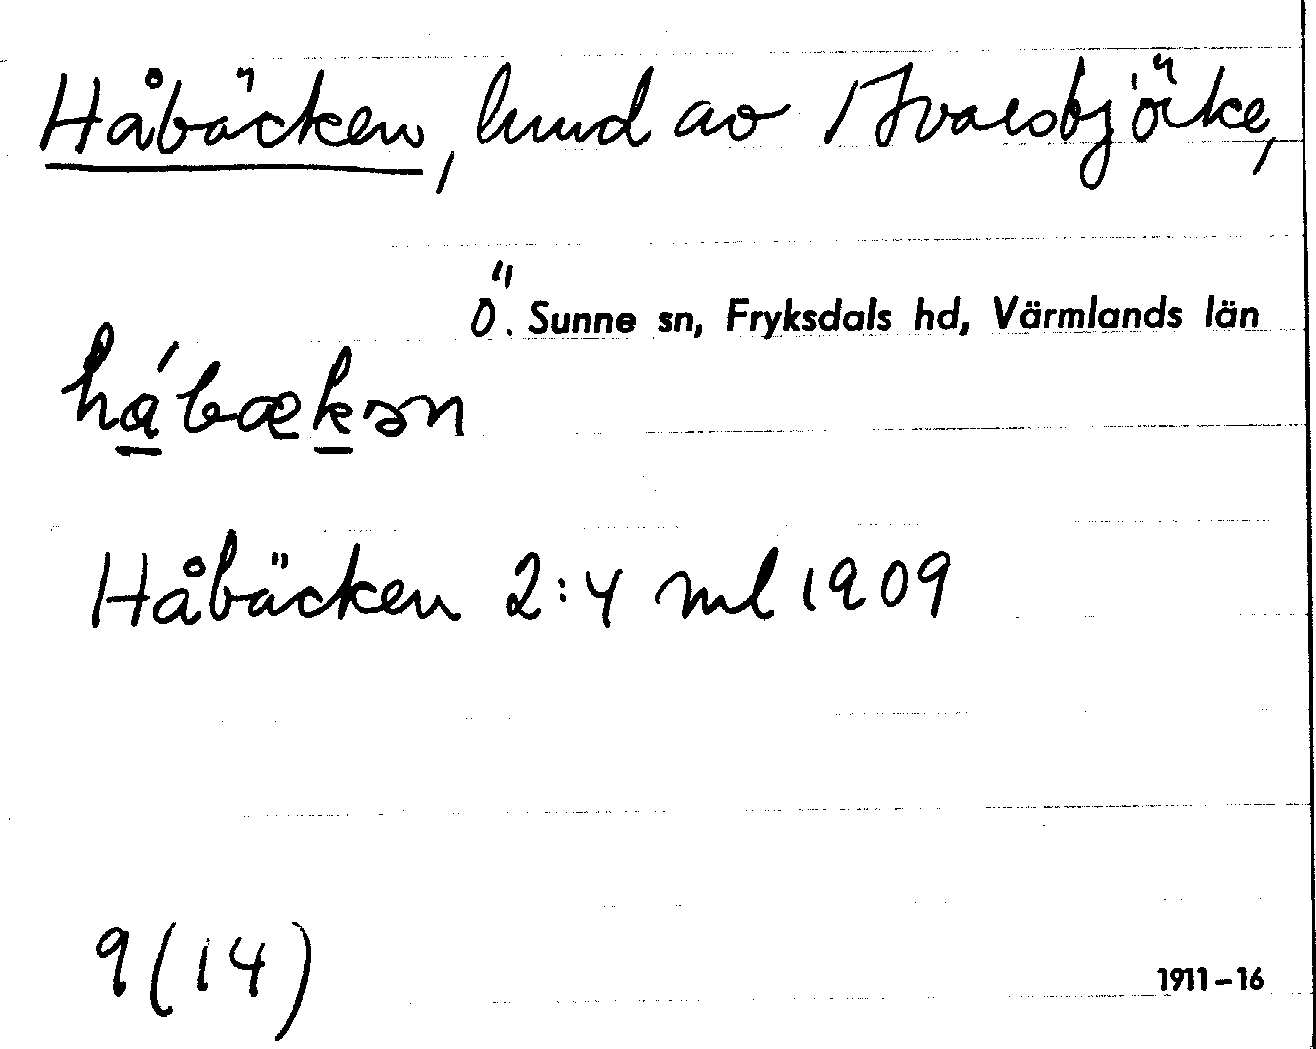 Håbäcken, lund av 1 Ivarsbjörke,
Ö. Sunne sn, Fryksdals hd, Värmlands län
hábækən
Håbäcken 2:4 ml 1909
9(14)
1911-16